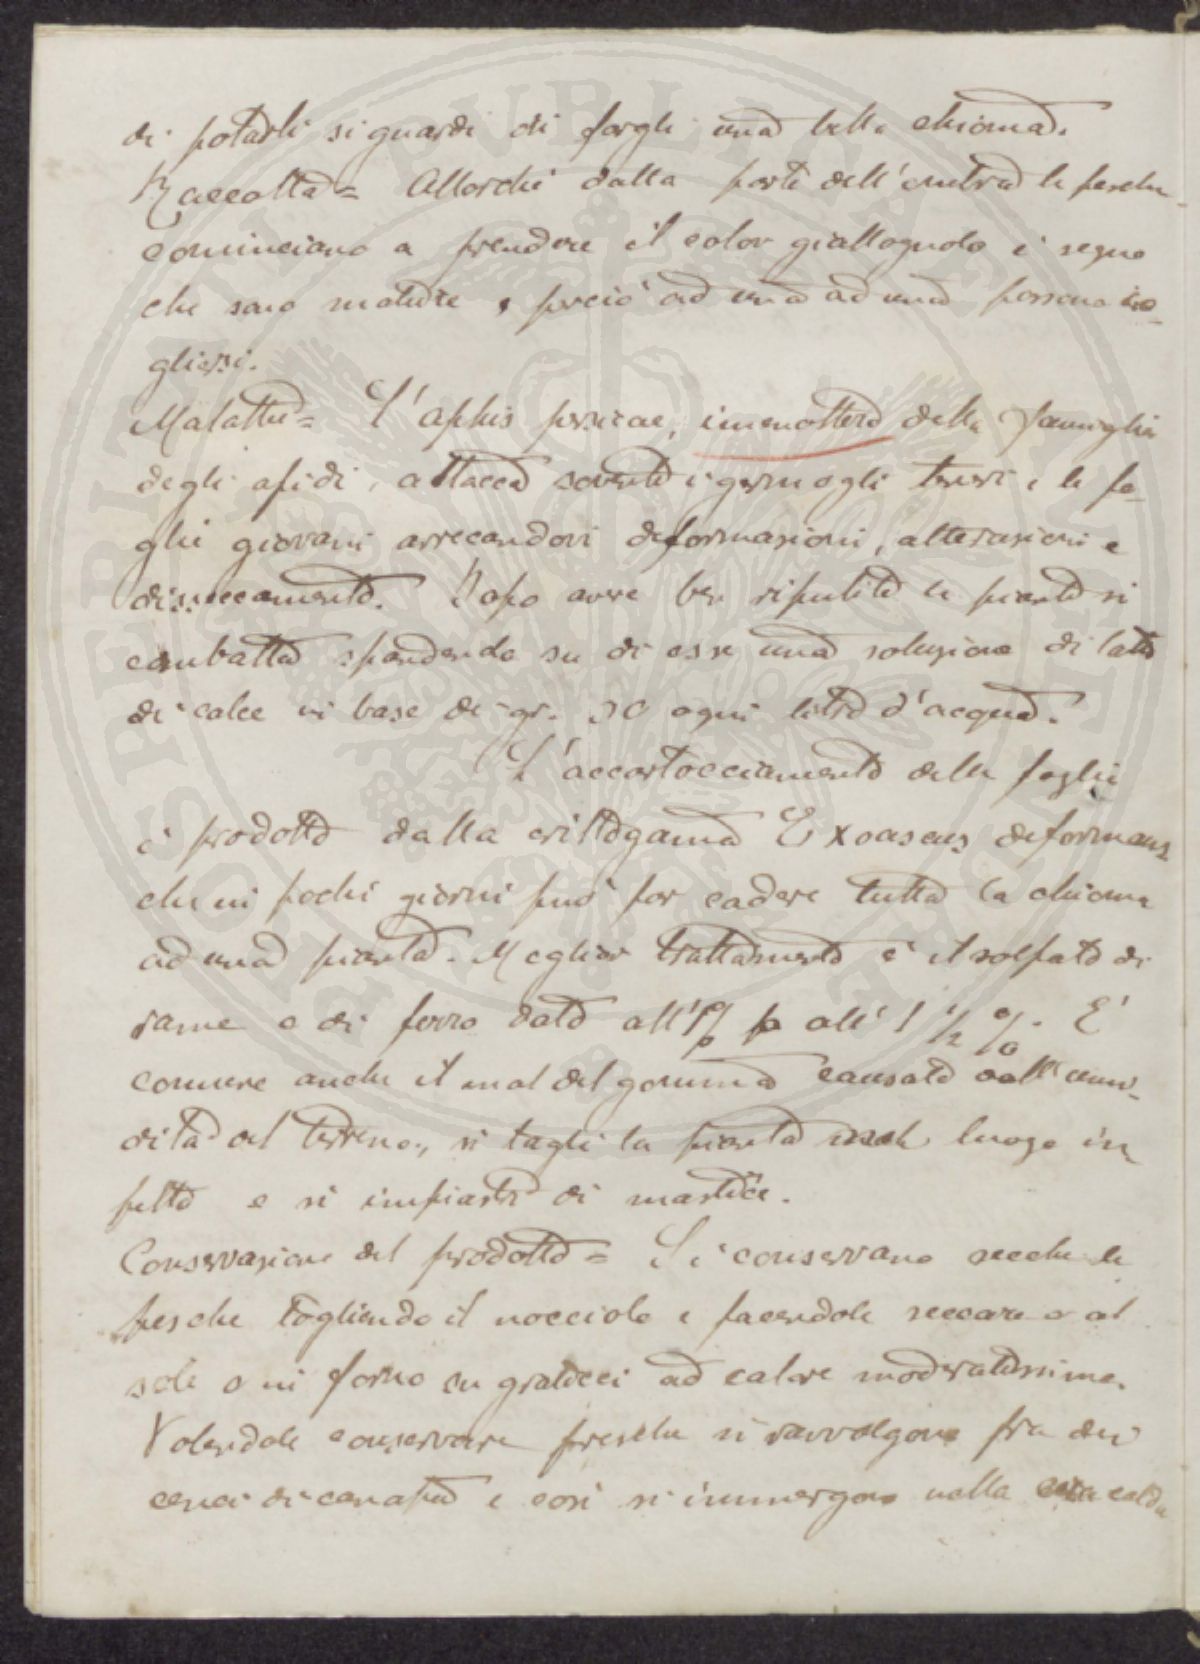 di potarli si guardi di fargli una bella chioma.
Raccolta = Allorchè dalla parte dell'ombra le pesche
cominciano a prendere il color giallognolo è segno
che sono mature, perciò ad una ad una possono co-
gliersi.
Malattie = L'aphis persicae, imenottero della famiglia
degli afidi, attacca sovente i germogli teneri e le fo-
glie giovani arrecandovi deformazioni, alterazioni e
disseccamento. Dopo avere ben ripulita la pianta si
combatte spandendo su di esse una soluzione di latte
di calce in base di gr. 30 ogni litro d'acqua.
L'accartocciamento delle foglie
è prodotto dalla crittogama Exoascus deformans
che in pochi giorni può far cadere tutta la chioma
ad una pianta. Meglior trattamento è il solfato di
rame e di ferro dato all'1% o all'1 ½ %. E'
comune anche il mal del gomma causato dall'umi-
dità del terreno, si tagli la pianta nel luogo in
fetto e si impiastri di mastice.
Conservazione del prodotto = Si conservano secche le
pesche togliendo il nocciolo e facendole seccare o al
sole o in forno su graticci ad calore moderatissimo.
Volendole conservare fresche si ravvolgono fra dei
cenci di canapa e così si immergono nella cera calda
PROSPERITATI PUBLICAE AUGENDAE